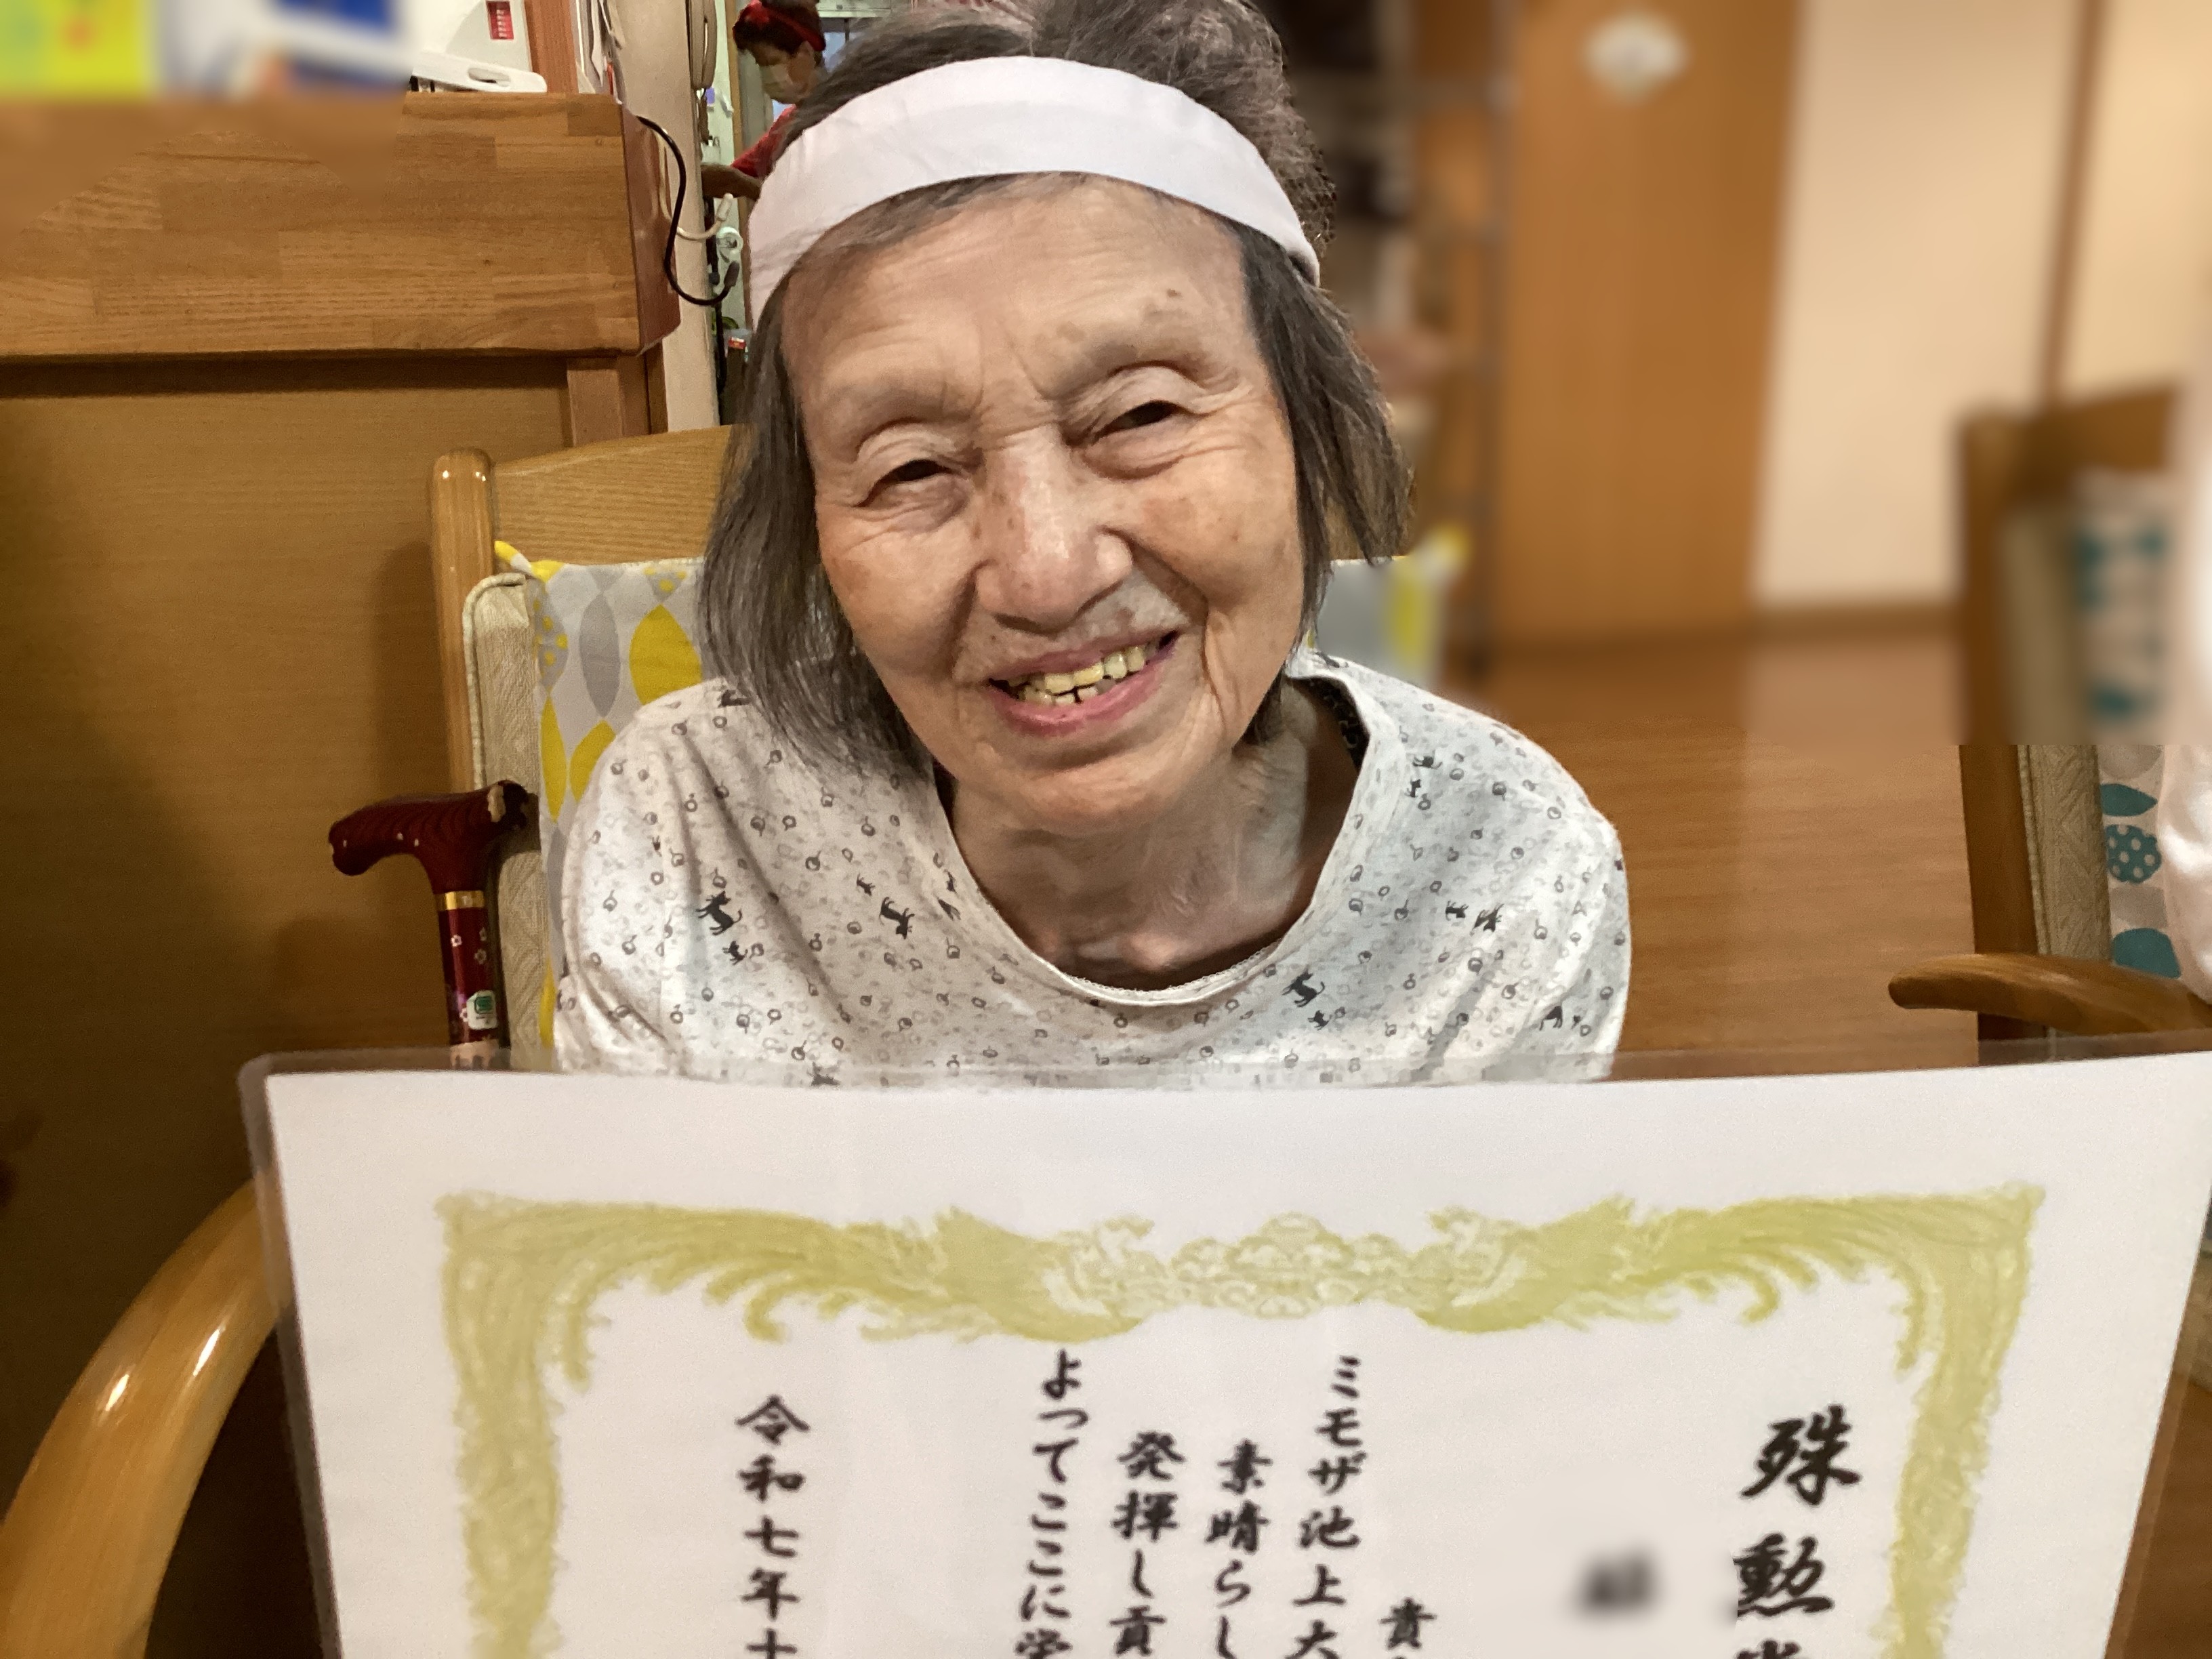 殊勲
貴
ミモザ池上大
素晴らし
発揮し貢
よってここに
令和七年十